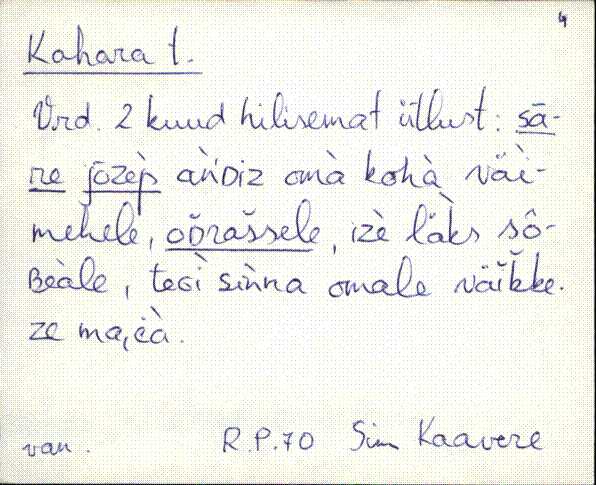 4
Kahara t.
Vrd. 2 kuud hilisemat ütlust: sā-
re jōzèp àǹDiz omà kohà väi-
mehele, oB̆rašsele, izè läks sô-
Beàle, teGì siǹna omale väĭkke.
ze ma,jà.
van. R.P.70 Sim Kaavere